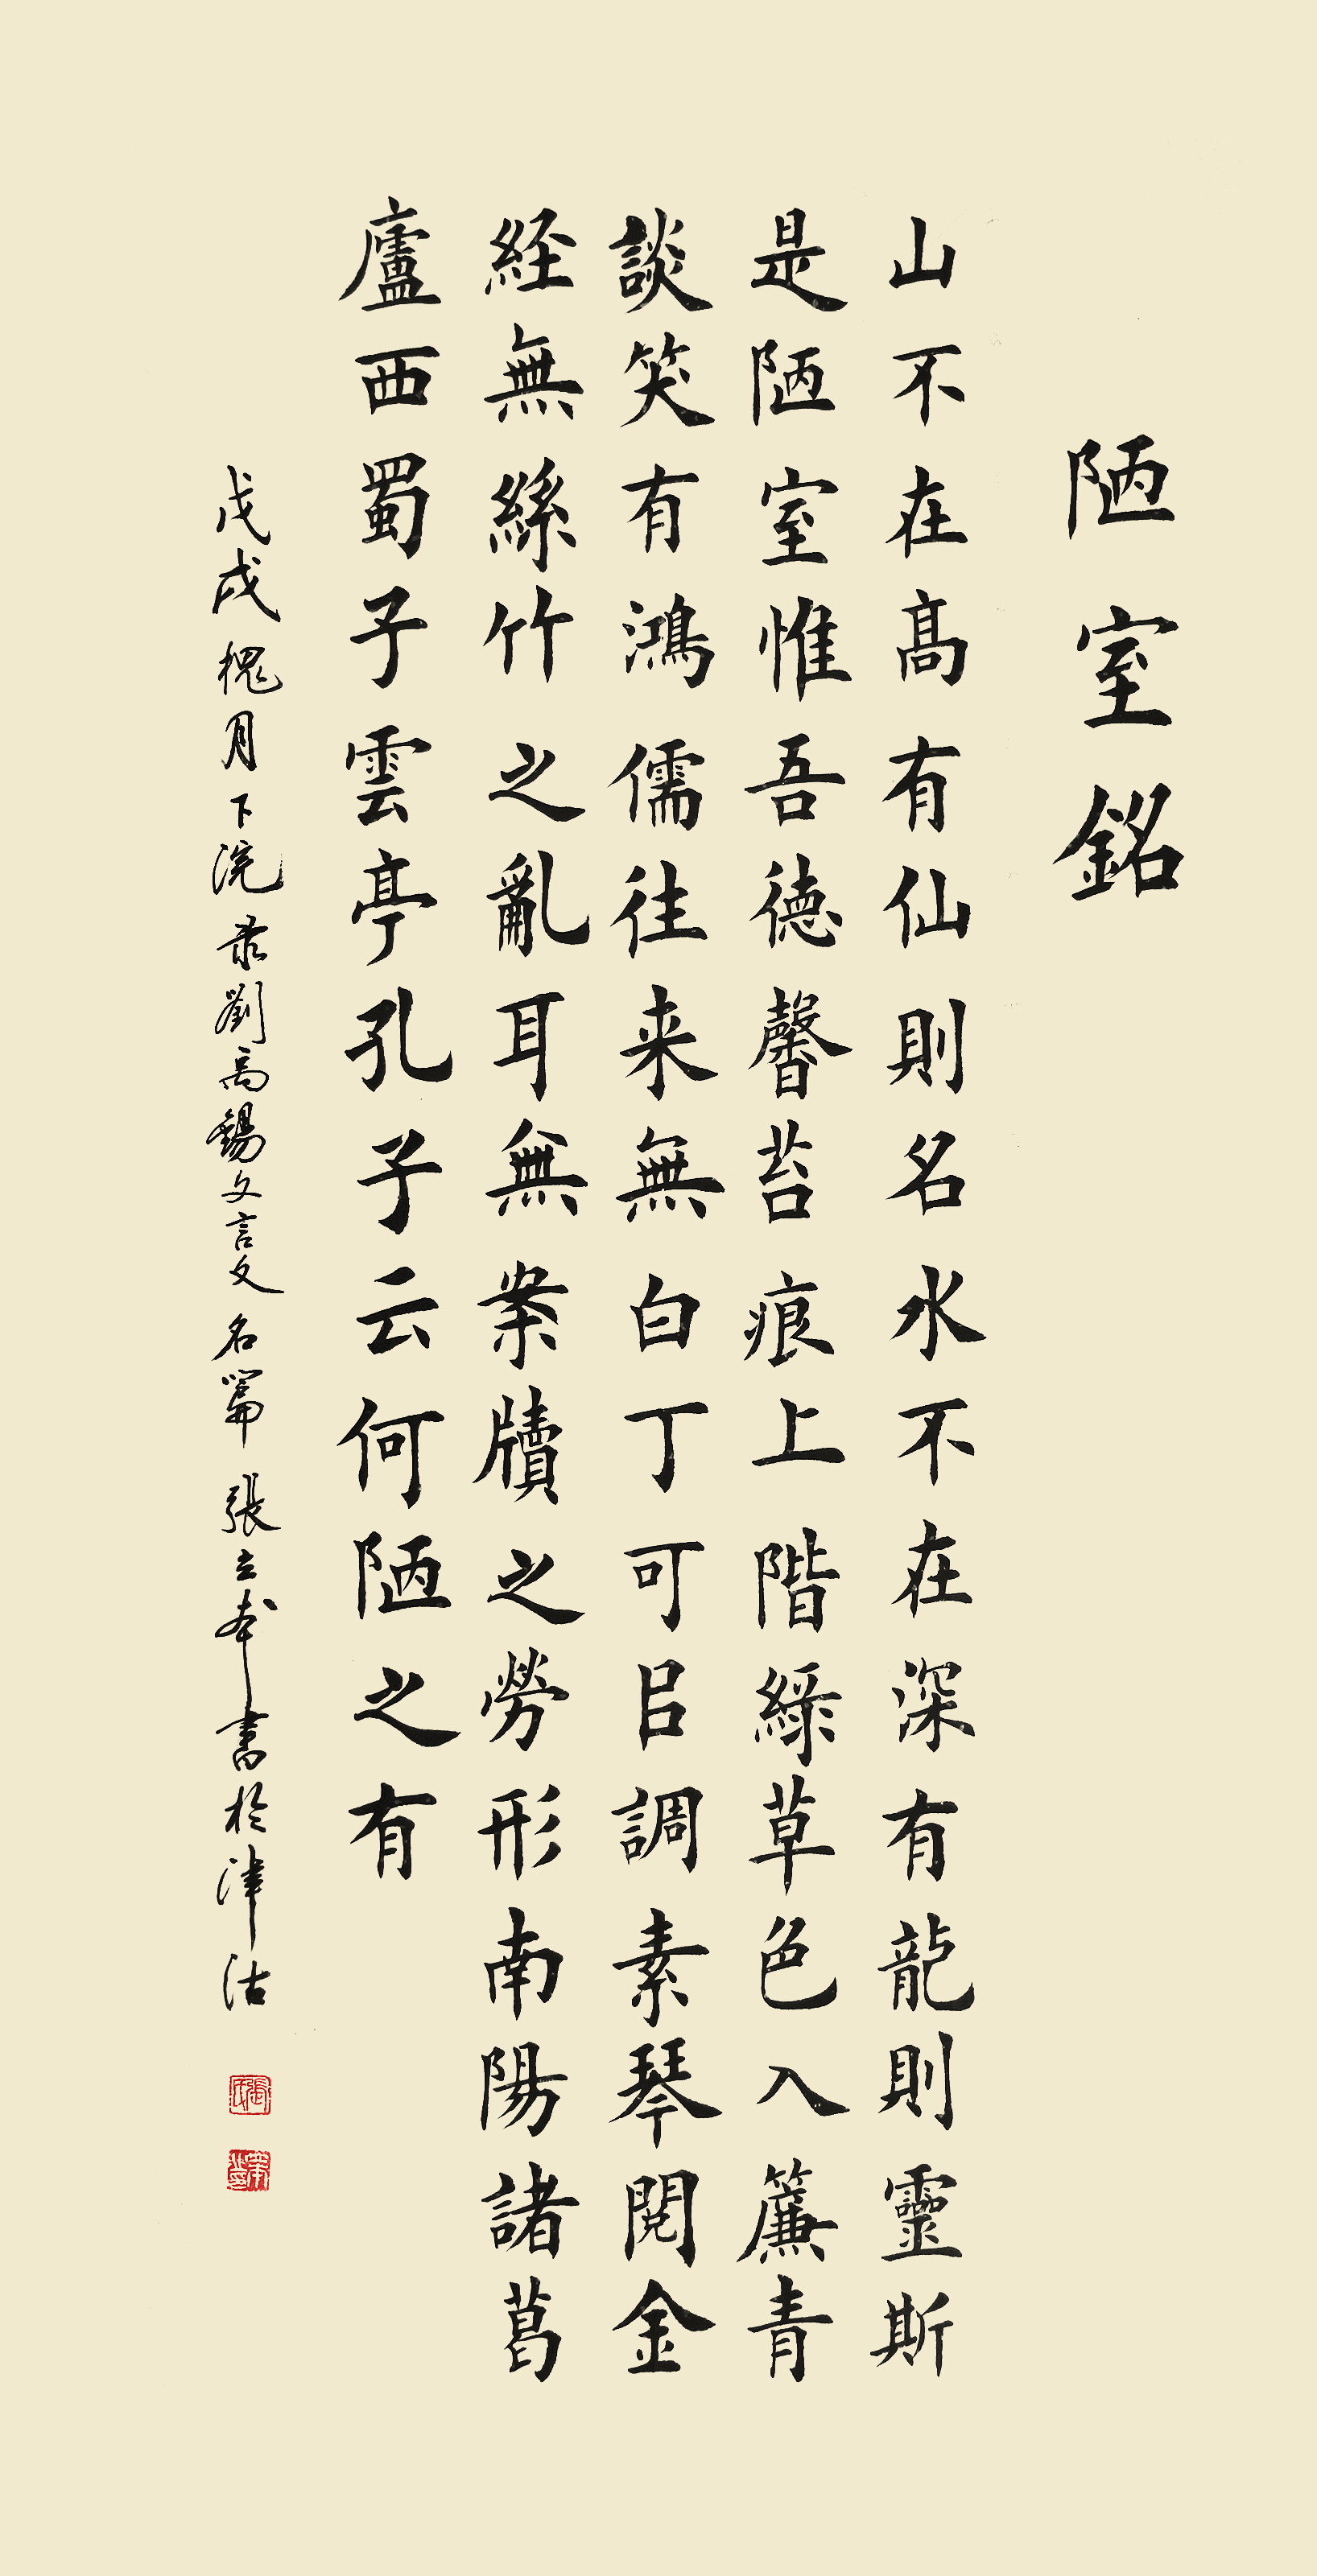 陋室銘
山不在高有仙則名水不在深有龍則靈斯
是陋室惟吾德馨苔痕上階綠草色入簾青
談笑有鴻儒往来無白丁可㠯調素琴閱金
経無絲竹之亂耳無案牘之勞形南陽諸葛
廬西蜀子雲亭孔子云何陋之有
戊戌槐月下浣录劉禹錫文言文名篇張立本書於津沽